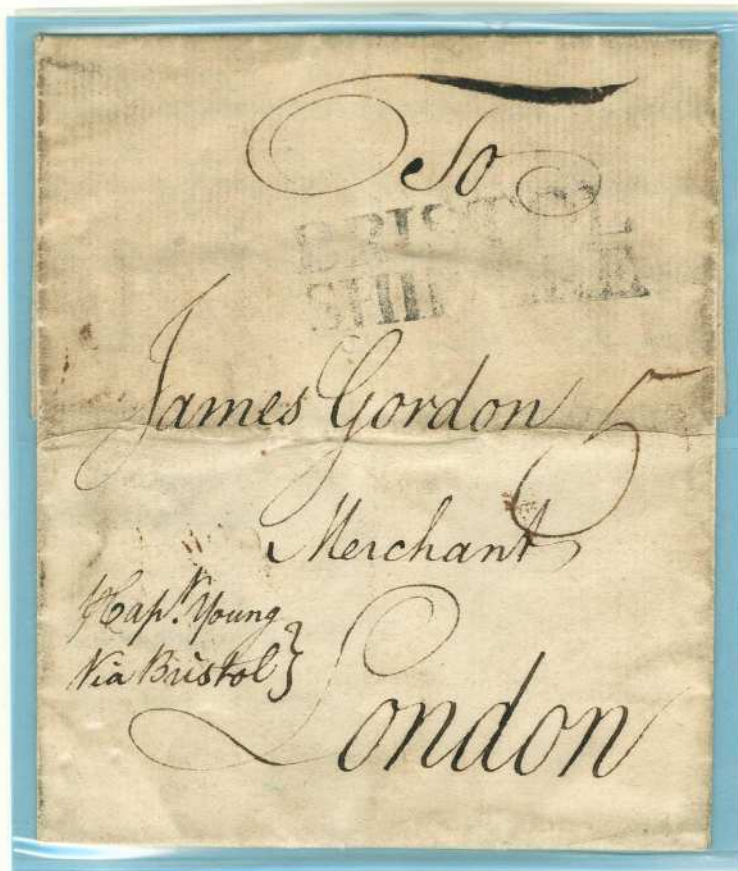 To
BRISTOL
SHIP
James Gordon
5
Merchant
Capt. Young
Via Bristol
London